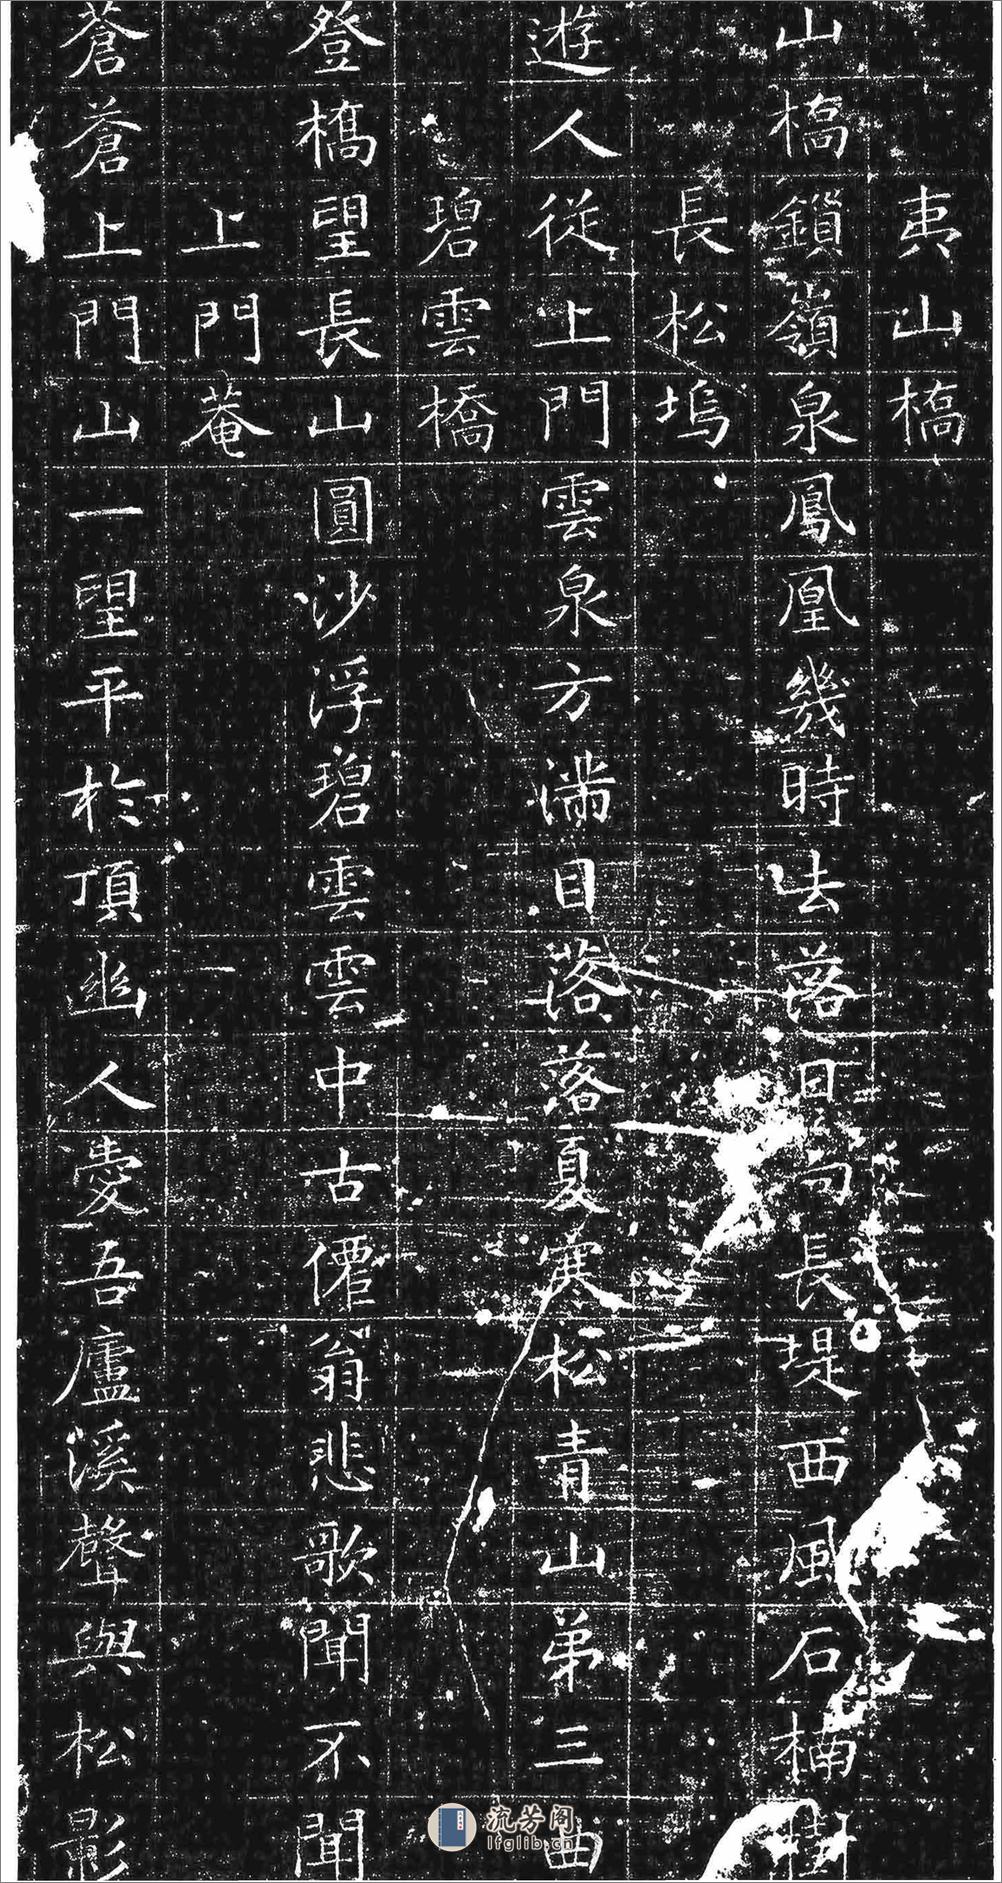 夷山橋
山橋鎖嶺泉鳳凰幾時去落日向長堤西風石楠樹
長松塢
遊人從上門雲泉方滿目落落夏寒松青山弟三曲
碧雲橋
登橋望長山圓沙浮碧雲雲中古僊翁悲歌聞不聞
上門菴
蒼蒼上門山一望平於頂幽人憂吾廬溪聲與松影
流芳阁
lfglib.cn